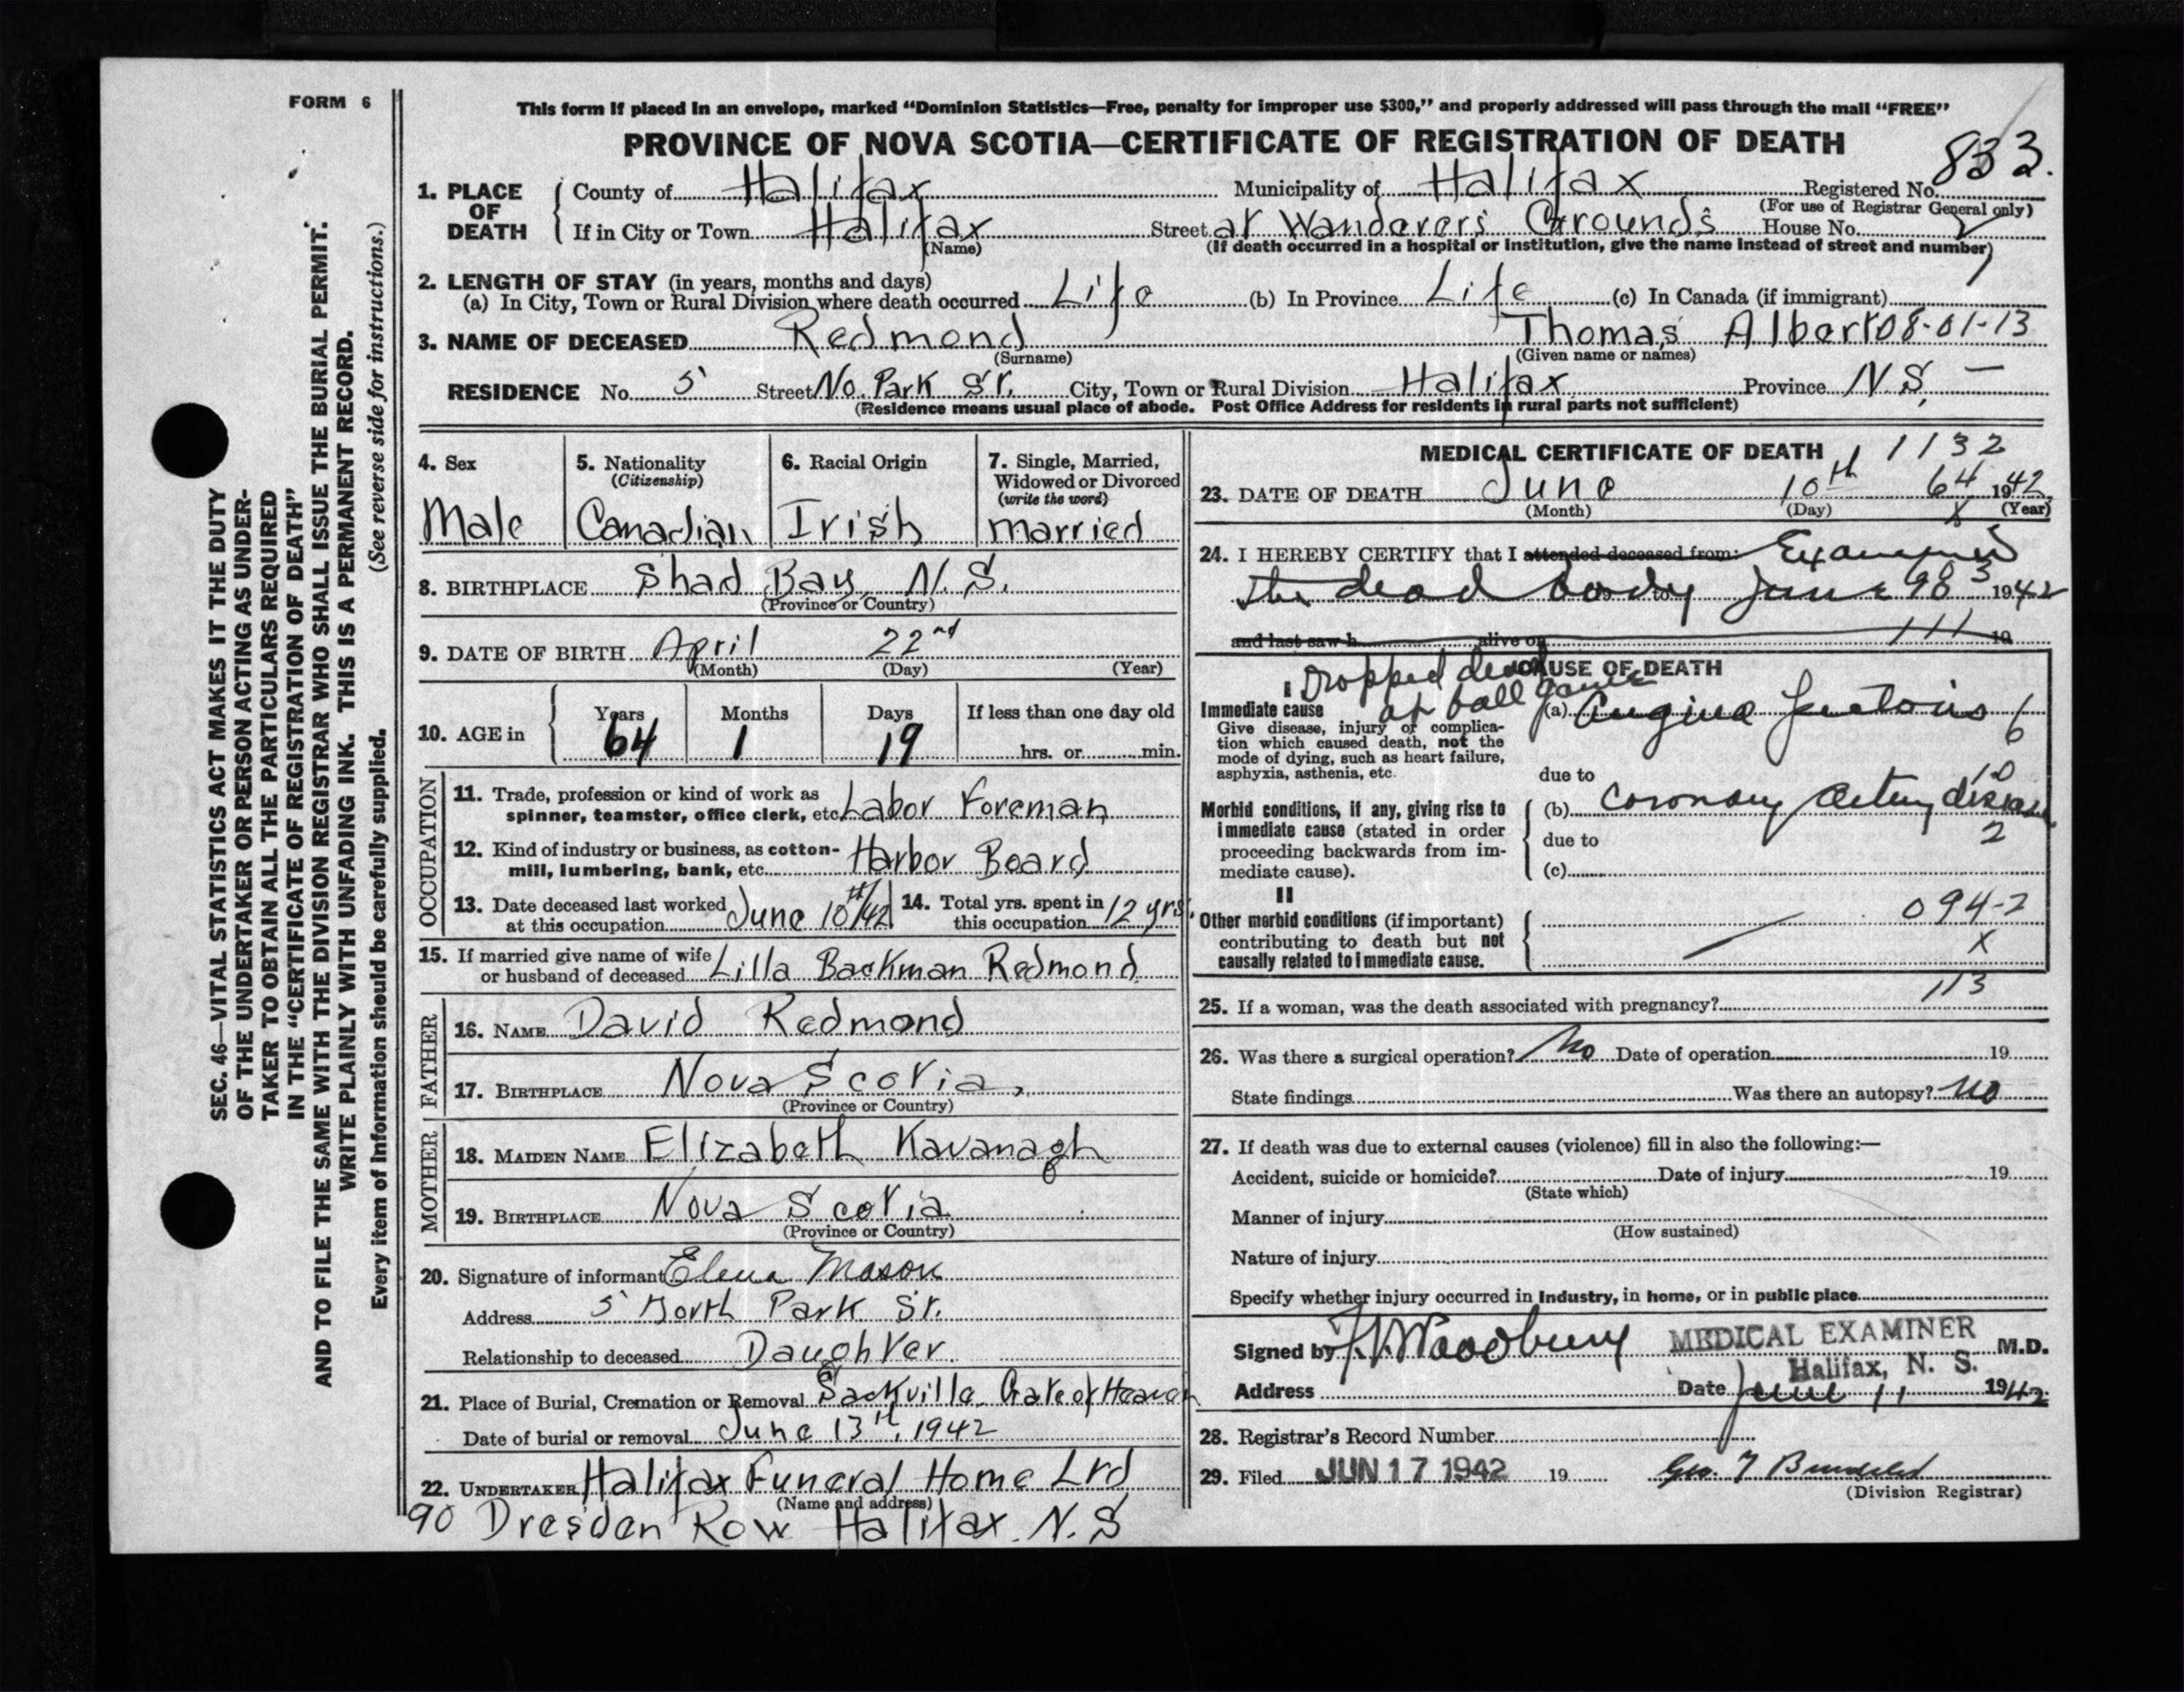 FORM 6
This form if placed in an envelope, marked “Dominion Statistics—Free, penalty for improper use $300,” and properly addressed will pass through the mail “FREE”
PROVINCE OF NOVA SCOTIA—CERTIFICATE OF REGISTRATION OF DEATH
833.
1. PLACE OF DEATH { County of Halifax Municipality of Halifax Registered No.
(For use of Registrar General only)
If in City or Town Halifax Street at Wanderers Grounds House No.
(Name) (If death occurred in a hospital or institution, give the name instead of street and number)
2. LENGTH OF STAY (in years, months and days)
(a) In City, Town or Rural Division where death occurred Life (b) In Province Life (c) In Canada (if immigrant)
3. NAME OF DECEASED Redmond Thomas Albert 08-01-13
(Surname) (Given name or names)
RESIDENCE No. 5 Street No. Park St. City, Town or Rural Division Halifax Province N.S. —
(Residence means usual place of abode. Post Office Address for residents in rural parts not sufficient)
4. Sex Male
5. Nationality (Citizenship) Canadian
6. Racial Origin Irish
7. Single, Married, Widowed or Divorced (write the word) married
8. BIRTHPLACE Shad Bay, N.S.
(Province or Country)
9. DATE OF BIRTH April 22nd
(Month) (Day) (Year)
10. AGE in { Years 64 Months 1 Days 19 If less than one day old
hrs. or min.
OCCUPATION
11. Trade, profession or kind of work as
spinner, teamster, office clerk, etc. Labor Foreman
12. Kind of industry or business, as cotton-
mill, lumbering, bank, etc. Harbor Board
13. Date deceased last worked
at this occupation June 10th/42
14. Total yrs. spent in
this occupation 12 yrs.
15. If married give name of wife
or husband of deceased Lilla Backman Redmond
FATHER
16. NAME David Redmond
17. BIRTHPLACE Nova Scotia,
(Province or Country)
MOTHER
18. MAIDEN NAME Elizabeth Kavanagh
19. BIRTHPLACE Nova Scotia
(Province or Country)
20. Signature of informant Elena Mason
Address 5 North Park St.
Relationship to deceased Daughter.
21. Place of Burial, Cremation or Removal Sackville Gate of Heaven
Date of burial or removal June 13th, 1942
22. UNDERTAKER Halifax Funeral Home Ltd
(Name and address)
90 Dresden Row Halifax. N.S
MEDICAL CERTIFICATE OF DEATH 1132
23. DATE OF DEATH June 10th 64 1942
(Month) (Day) X (Year)
24. I HEREBY CERTIFY that I attended deceased from: Examined
the dead body June 1942
and last saw h alive on 19
111
CAUSE OF DEATH
I Dropped dead
at ball game
Immediate cause (a) Angina Pectoris
Give disease, injury or complica-
tion which caused death, not the
mode of dying, such as heart failure,
asphyxia, asthenia, etc.
due to
Morbid conditions, if any, giving rise to (b) Coronary Artery disease.
immediate cause (stated in order
proceeding backwards from im-
mediate cause).
due to 2
(c)
II
Other morbid conditions (if important)
contributing to death but not
causally related to immediate cause.
094-2
X
113
25. If a woman, was the death associated with pregnancy?
26. Was there a surgical operation? No Date of operation 19
State findings Was there an autopsy? No
27. If death was due to external causes (violence) fill in also the following:—
Accident, suicide or homicide? Date of injury 19
(State which)
Manner of injury
(How sustained)
Nature of injury
Specify whether injury occurred in industry, in home, or in public place
Signed by Woodbury MEDICAL EXAMINER M.D.
Halifax, N. S.
Address Date June 11 1942
28. Registrar's Record Number
29. Filed JUN 17 1942 19
(Division Registrar)
SEC. 46—VITAL STATISTICS ACT MAKES IT THE DUTY
OF THE UNDERTAKER OR PERSON ACTING AS UNDER-
TAKER TO OBTAIN ALL THE PARTICULARS REQUIRED
IN THE “CERTIFICATE OF REGISTRATION OF DEATH”
AND TO FILE THE SAME WITH THE DIVISION REGISTRAR WHO SHALL ISSUE THE BURIAL PERMIT.
WRITE PLAINLY WITH UNFADING INK. THIS IS A PERMANENT RECORD.
Every item of information should be carefully supplied. (See reverse side for instructions.)